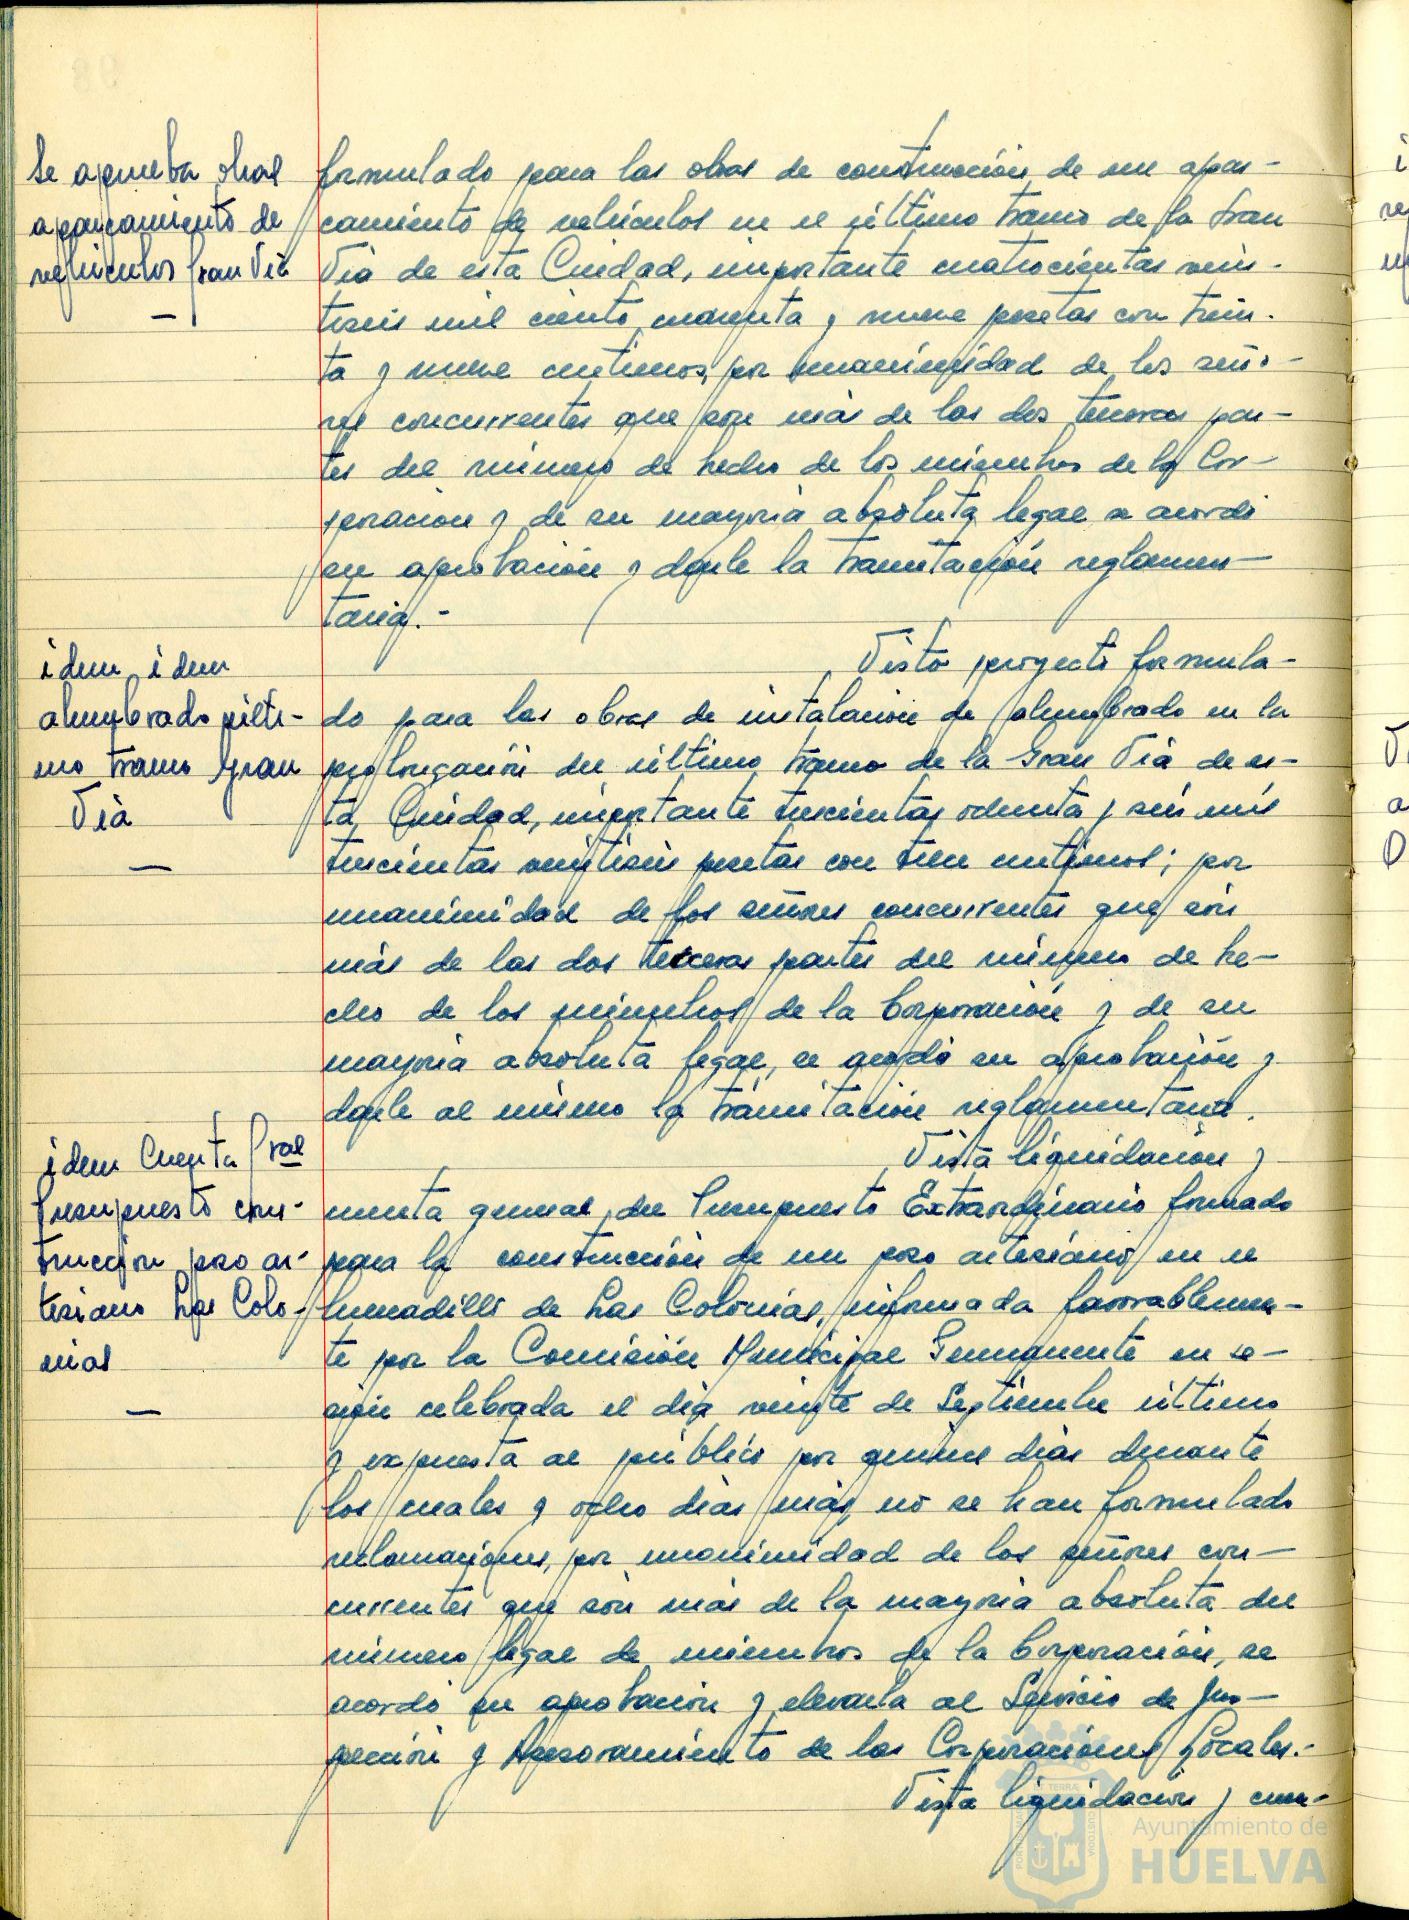 Se aprueba obras
aparcamiento de
vehículos Gran Vía
—
formulado para las obras de construcción de un apar-
camiento de vehículos en el último tramo de la Gran
Vía de esta Ciudad, importante cuatrocientas vein-
tiseis mil ciento cuarenta y nueve pesetas con trein-
ta y nueve centimos, por unanimidad de los seño-
res concurrentes que son más de las dos terceras par-
tes del número de hecho de los miembros de la Cor-
poración y de su mayoría absoluta legal se acordó
su aprobación y darle la tramitación reglamen-
taria.-
idem idem
alumbrado últi-
mo tramo Gran
Vía
—
Visto proyecto formula-
do para las obras de instalación de alumbrado en la
prolongación del último tramo de la Gran Vía de es-
ta Ciudad, importante trescientas ochenta y seis mil
trescientas veintiseis pesetas con trece centimos; por
unanimidad de los señores concurrentes que són
más de las dos terceras partes del número de he-
cho de los miembros de la Corporación y de su
mayoría absoluta legal, se acordó su aprobación y
darle al mismo la tramitación reglamentaria.
idem Cuenta Gral
Presupuesto cons-
trucción pozo ar-
tesiano Las Colo-
nias
—
Vista liquidación y
cuenta general del Presupuesto Extraordinario formado
para la construcción de un pozo artesiano en el
Cumadillo de Las Colonias, informada favorablemen-
te por la Comisión Municipal Permanente en se-
sión celebrada el día veinte de Septiembre último
y expuesta al público por quince días durante
los cuales y ocho días más, no se han formulado
reclamaciones, por unanimidad de los señores con-
currentes que són más de la mayoría absoluta del
número legal de miembros de la Corporación, se
acordó su aprobación y elevarla al Servicio de Ins-
pección y Asesoramiento de las Corporaciones Locales.-
Vista liquidación y cuen-
Ayuntamiento de
HUELVA